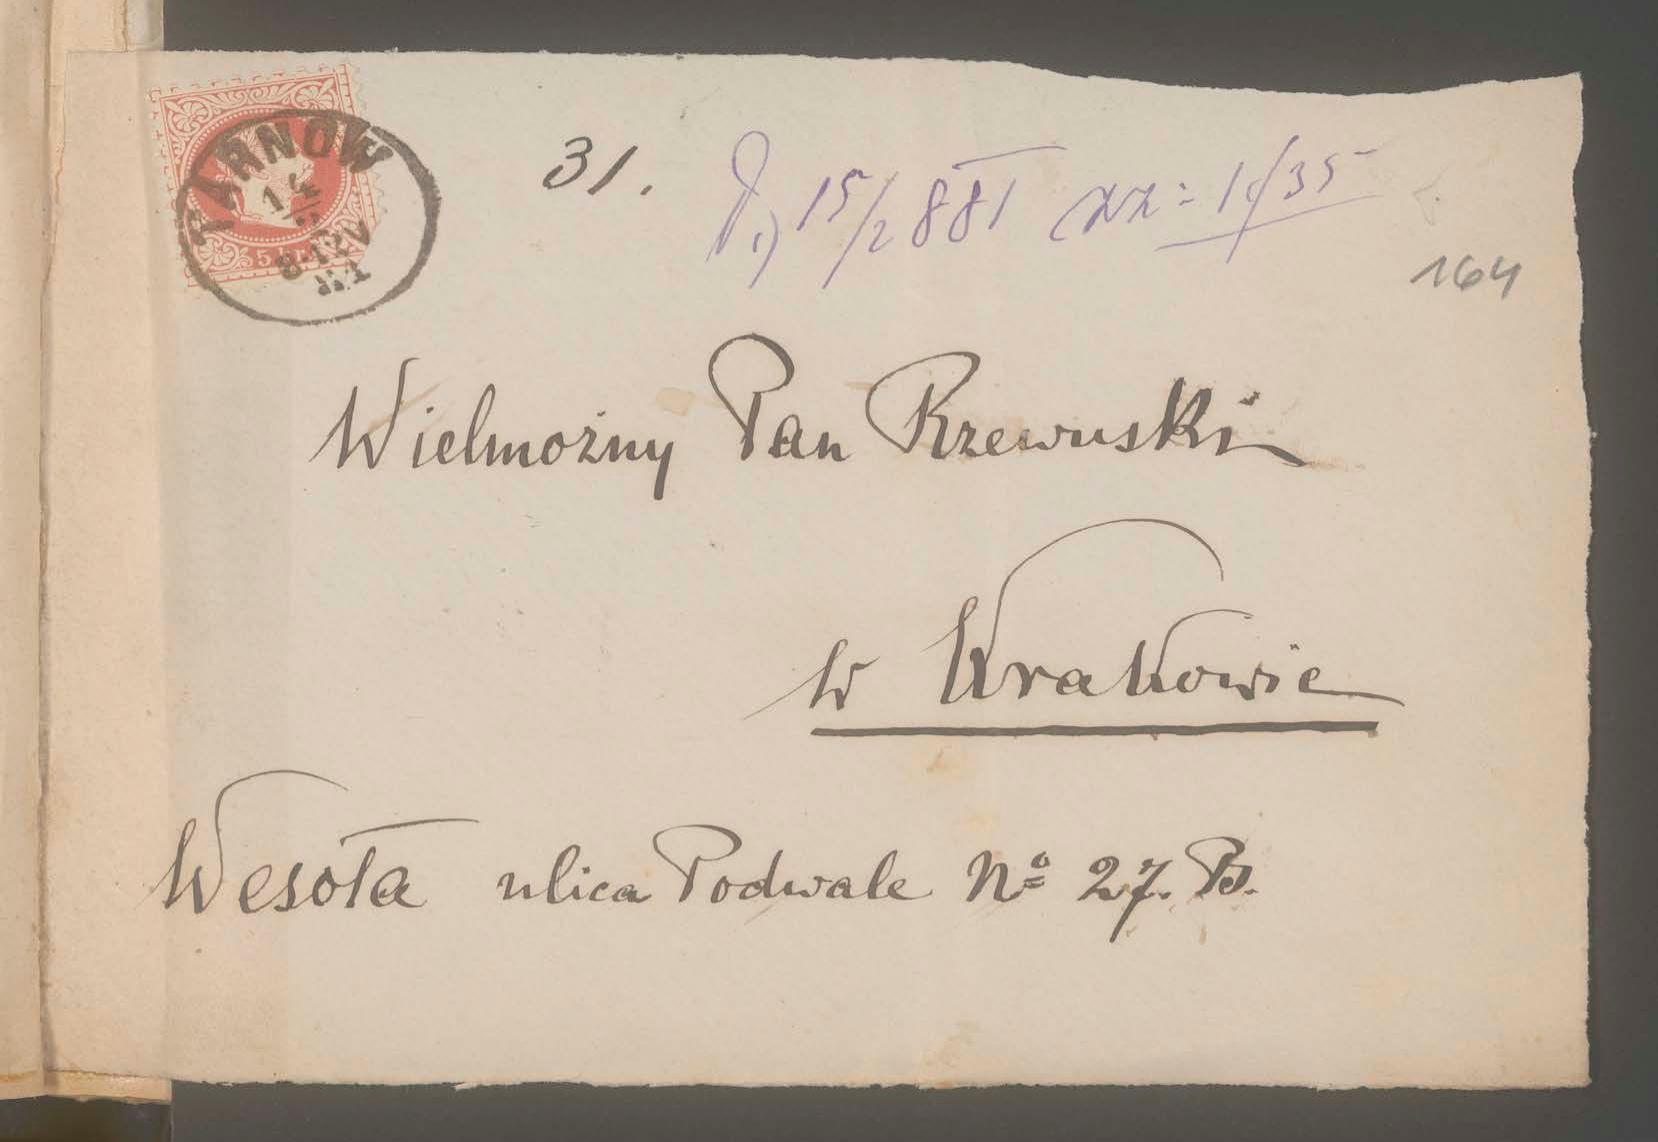 TARNOW
14
8-12V
31.
15/2 881
164
Wielmożny Pan Rzewuski
w Krakowie
Wesoła ulica Podwale No 27. B.